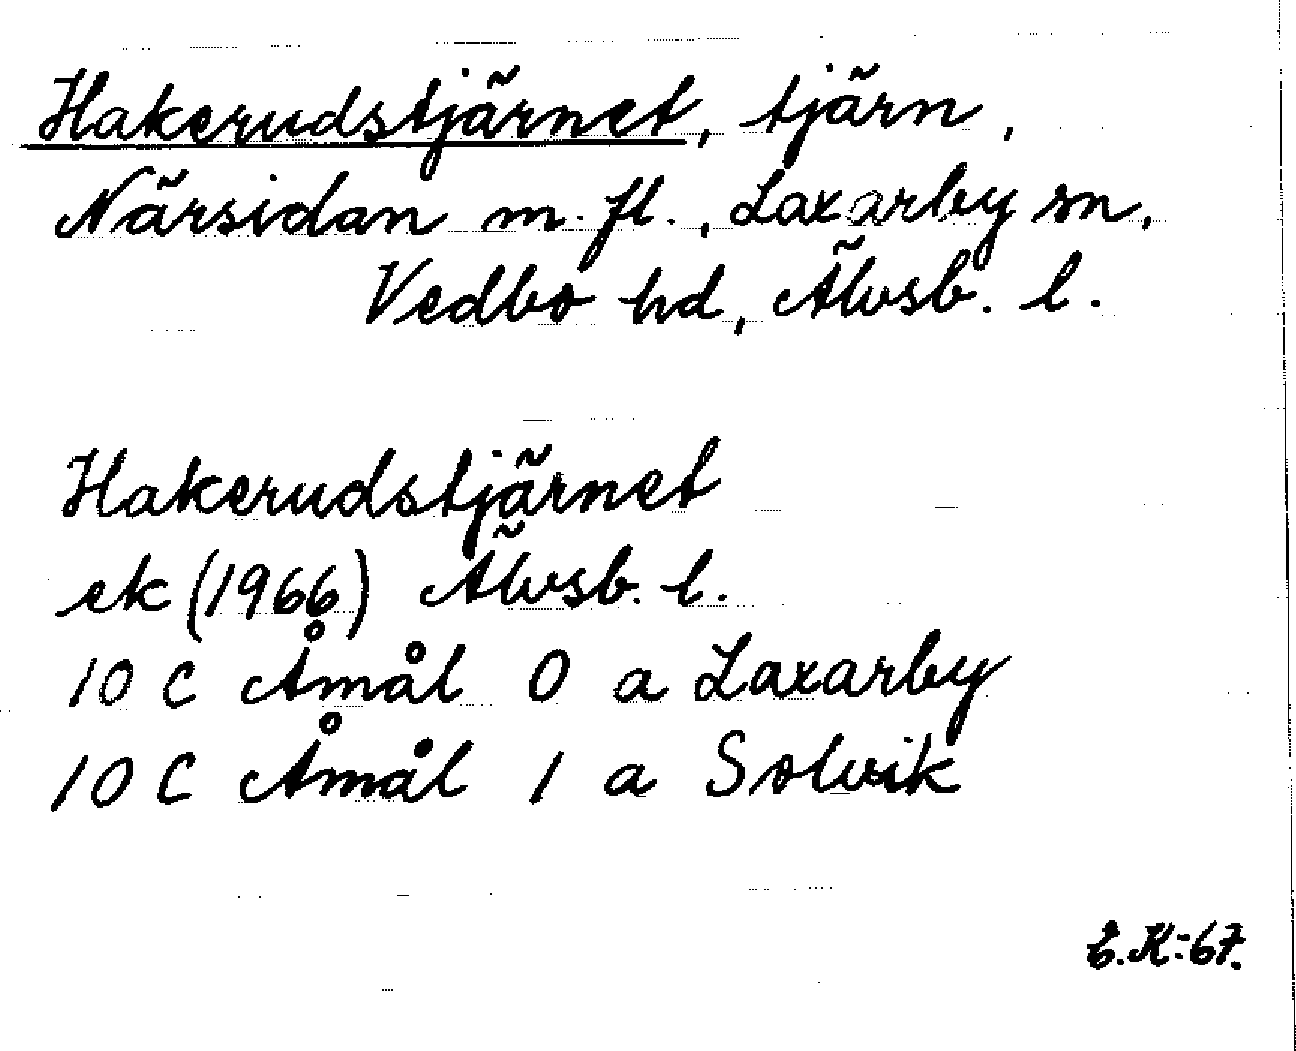 Hakerudstjärnet, tjärn,
Närsidan m. fl., Laxarby sn,
Vedbo hd, Älvsb. l.
Hakerudstjärnet
ek (1966) Älvsb. l.
10 C Åmål 0 a Laxarby
10 C Åmål 1 a Solvik
E.K:67.